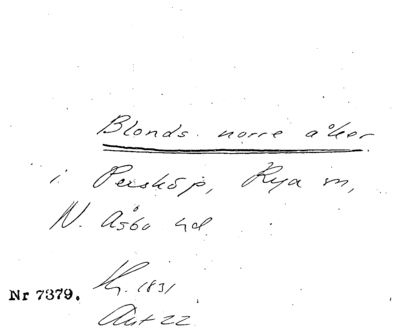 Blonds norre åker
i Perstöp, Rya sn,
N. Åsbo hd
Nr 7379. Kr. 1831
Akt 22